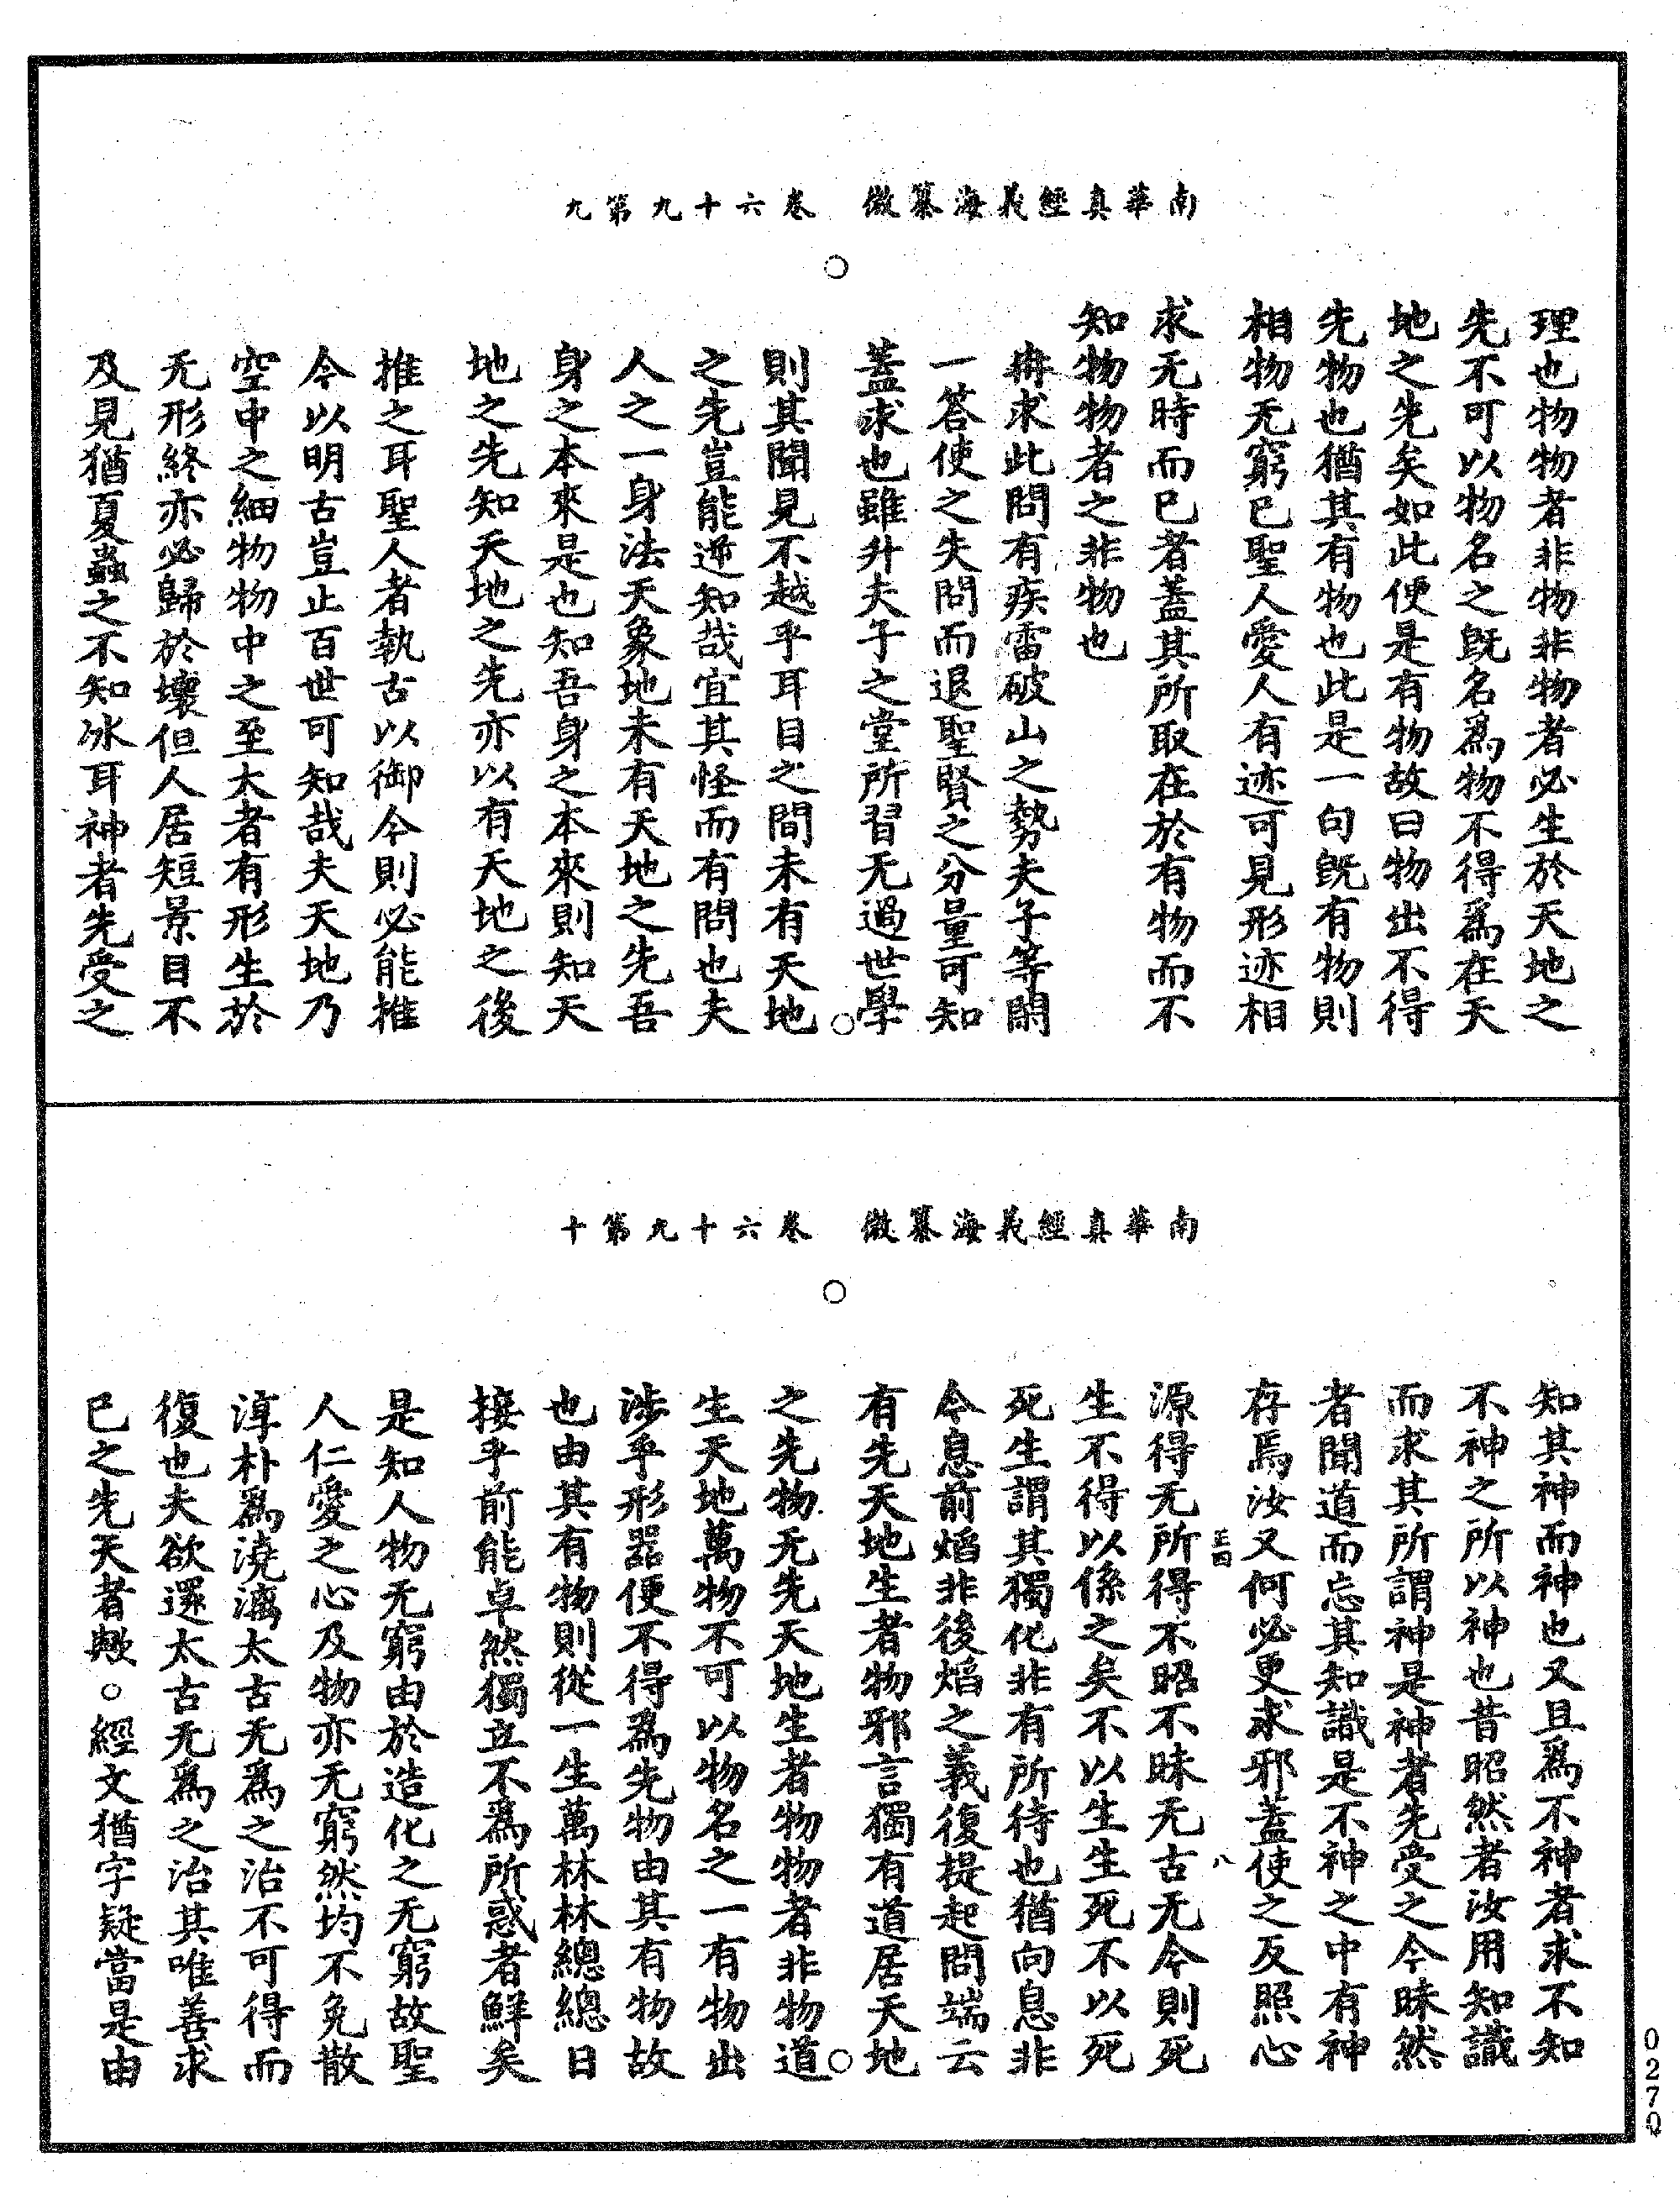 南華真經義海纂微　卷六十九第九
理也物物者非物非物者必生於天地之
先不可以物名之旣名爲物不得爲在天
地之先矣如此便是有物故曰物出不得
先物也猶其有物也此是一句旣有物則
相物无窮已聖人愛人有迹可見形迹相
求无時而已者蓋其所取在於有物而不
知物物者之非物也
冉求此問有疾雷破山之勢夫子等閑
一答使之失問而退聖賢之分量可知
蓋求也雖升夫子之堂所習无過世學
則其聞見不越乎耳目之間未有天地
之先豈能逆知哉宜其怪而有問也夫
人之一身法天象地未有天地之先吾
身之本來是也知吾身之本來則知天
地之先知天地之先亦以有天地之後
推之耳聖人者執古以御今則必能推
今以明古豈止百世可知哉夫天地乃
空中之細物物中之至大者有形生於
无形終亦必歸於壞但人居短景目不
及見猶夏蟲之不知冰耳神者先受之
南華真經義海纂微　卷六十九第十
知其神而神也又且爲不神者求不知
不神之所以神也昔昭然者汝用知識
而求其所謂神是神者先受之今昧然
者聞道而忘其知識是不神之中有神
存焉汝又何必更求邪蓋使之反照心
源得无所得不昭不昧无古无今則死
生不得以係之矣不以生生死不以死
死生謂其獨化非有所待也猶向息非
今息前焰非後焰之義復提起問端云
有先天地生者物邪言獨有道居天地
之先物无先天地生者物物者非物道
生天地萬物不可以物名之一有物出
涉乎形器便不得爲先物由其有物故
也由其有物則從一生萬林林總總日
接乎前能卓然獨立不爲所惑者鮮矣
是知人物无窮由於造化之无窮故聖
人仁愛之心及物亦无窮然均不免散
淳朴爲澆漓太古无爲之治不可得而
復也夫欲還太古无爲之治其唯善求
已之先天者歟○經文猶字疑當是由
八
0270